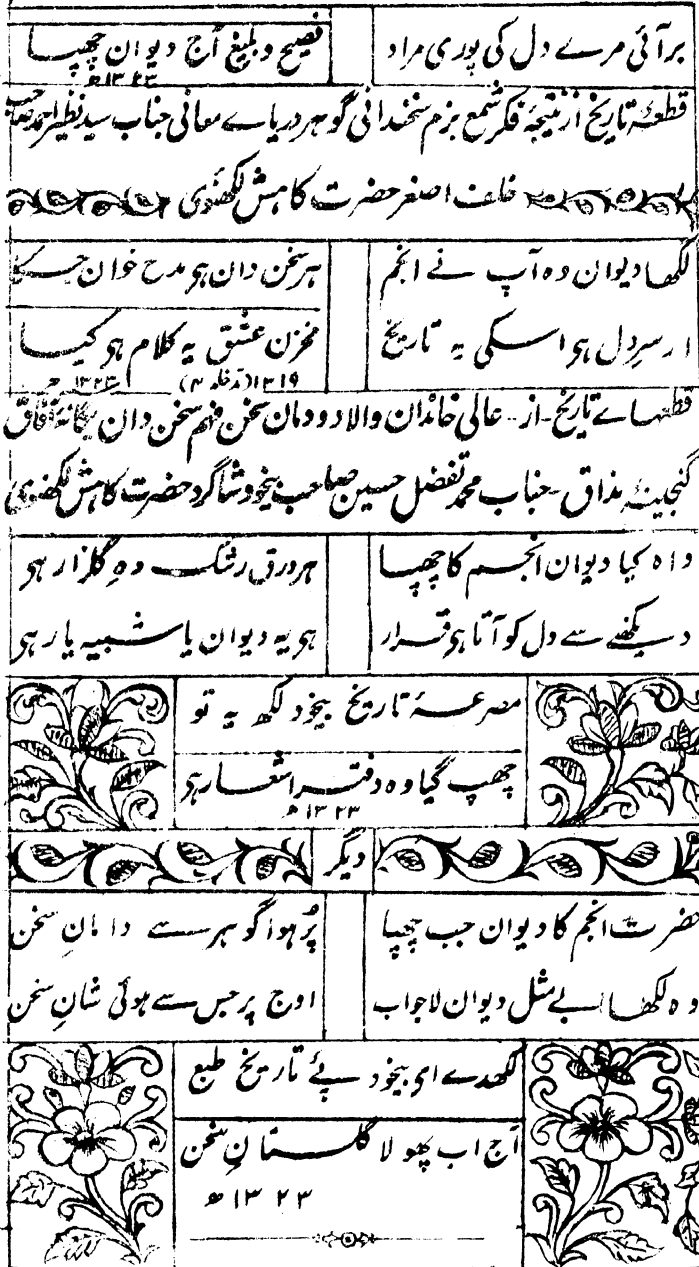 بر آئی مرے دل کی پوری مراد
فصیح و بلیغ آج دیوان چھپا
۱۳۲۳ھ
قطعۂ تاریخ از نتیجۂ فکر شمع بزم سخندانی گوہر دریاے معانی جناب سید نظیر احمد صاحب
خلف اصغر حضرت کاہش لکھنوی
لکھا دیوان وہ آپ نے انجم
ہر سخن دان ہو مدح خوان جسکا
از سرِ دل ہو اسکی یہ تاریخ
مخزن عشق یہ کلام ہو کیسا
۱۳۱۹ (تدخلہ ۴) ۱۳۲۳ھ
قطہاے تاریخ از عالی خاندان والا دودمان سخن فہم سخن دان یگانۂ آفاق
گنجینۂ مذاق جناب محمد تفضل حسین صاحب بیخود شاگرد حضرت کاہش لکھنوی
واہ کیا دیوان انجم کا چھپا
ہر ورق رشک دہِ گلزار ہو
دیکھنے سے دل کو آتا ہو قرار
ہو یہ دیوان یا شبیہ یار ہو
مصرعۂ تاریخ بیخود لکھ یہ تو
چھپ گیا وہ دفتر اشعار ہو
۱۳۲۳ھ
دیگر
حضرت انجم کا دیوان جب چھپا
پُر ہوا گوہر سے دامانِ سخن
وہ لکھا بے مثل دیوان لاجواب
اوج پر جس سے ہوئی شانِ سخن
لکھدے ای بیخود پئے تاریخ طبع
آج اب پھولا گلستانِ سخن
۱۳۲۳ھ